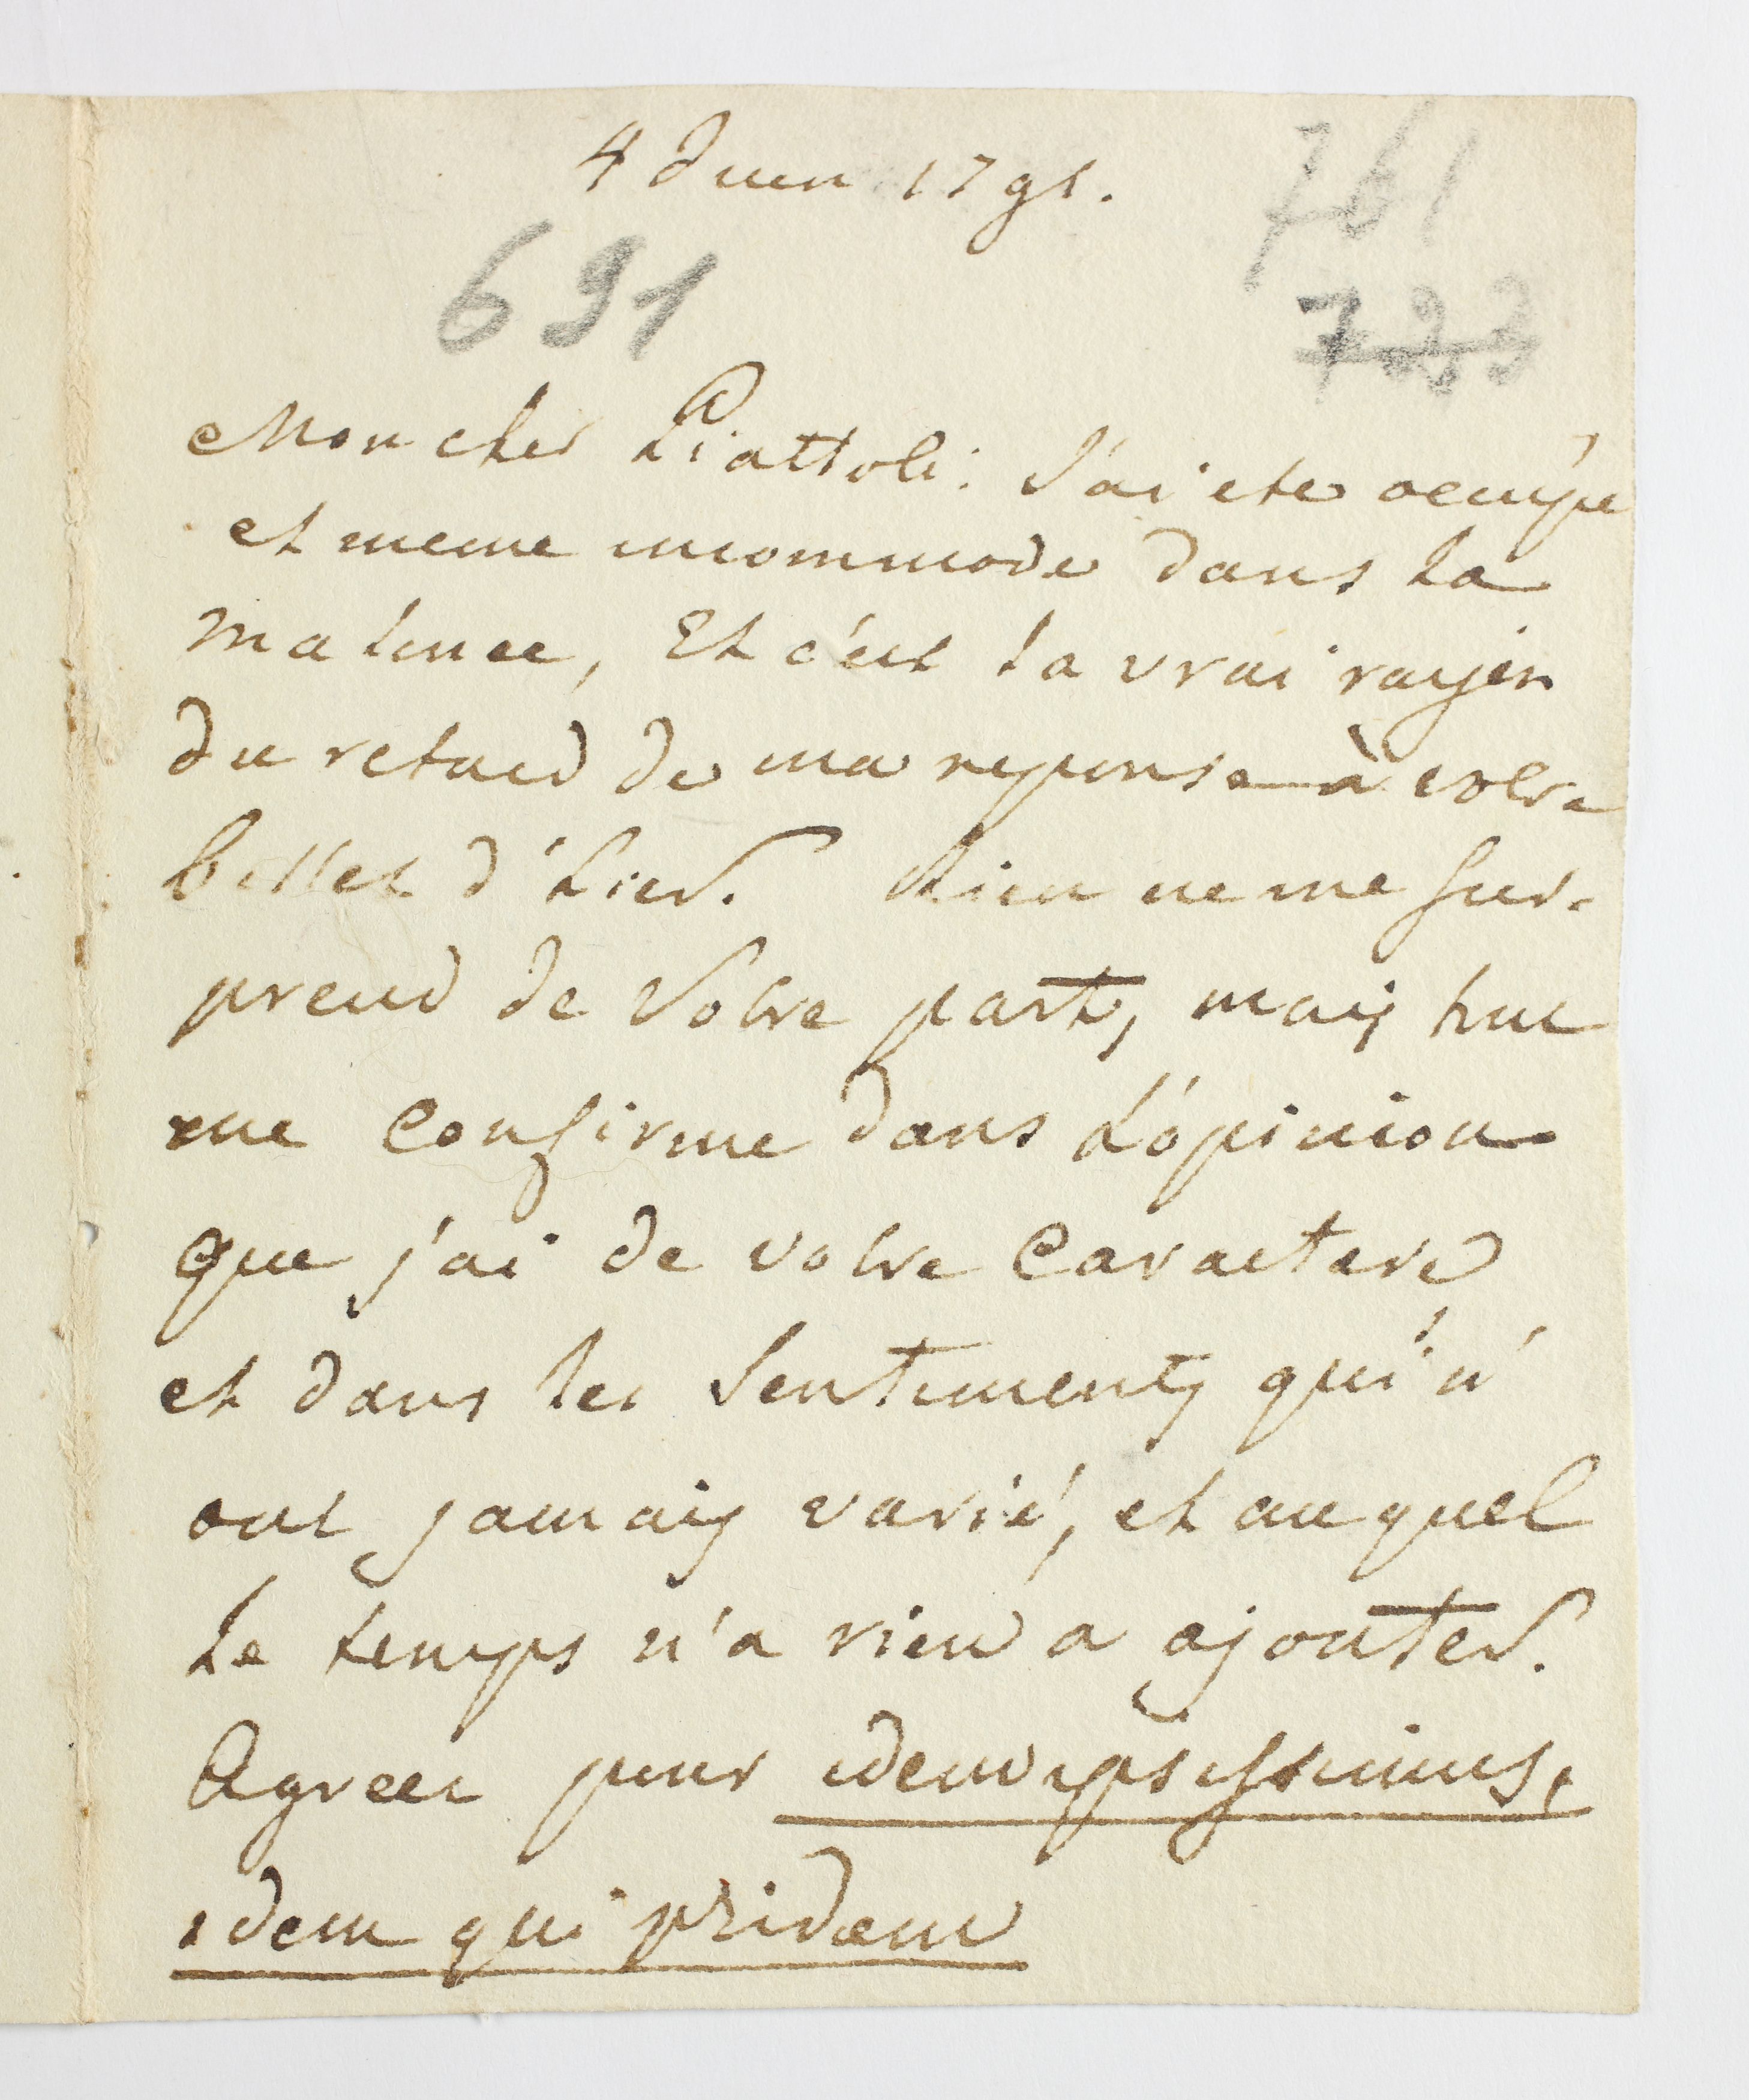 4 Juin 1791.
761
691
733
Mon cher Piattoli. J'ai eté ocupé
et meme incommode dans la
matinee, Et c'est la vrai raison
du retard de ma reponse à votre
billet d'hier. Rien ne me sur-
prend de Votre part, mais tout
me confirme dans L'opinion
que j'ai de votre Caractere
et dans les Sentiments qui n'
ont jamais varié, et auquel
le temps n'a rien a ajouter.
Agreer pour idem ipsissimus,
idem qui pridem